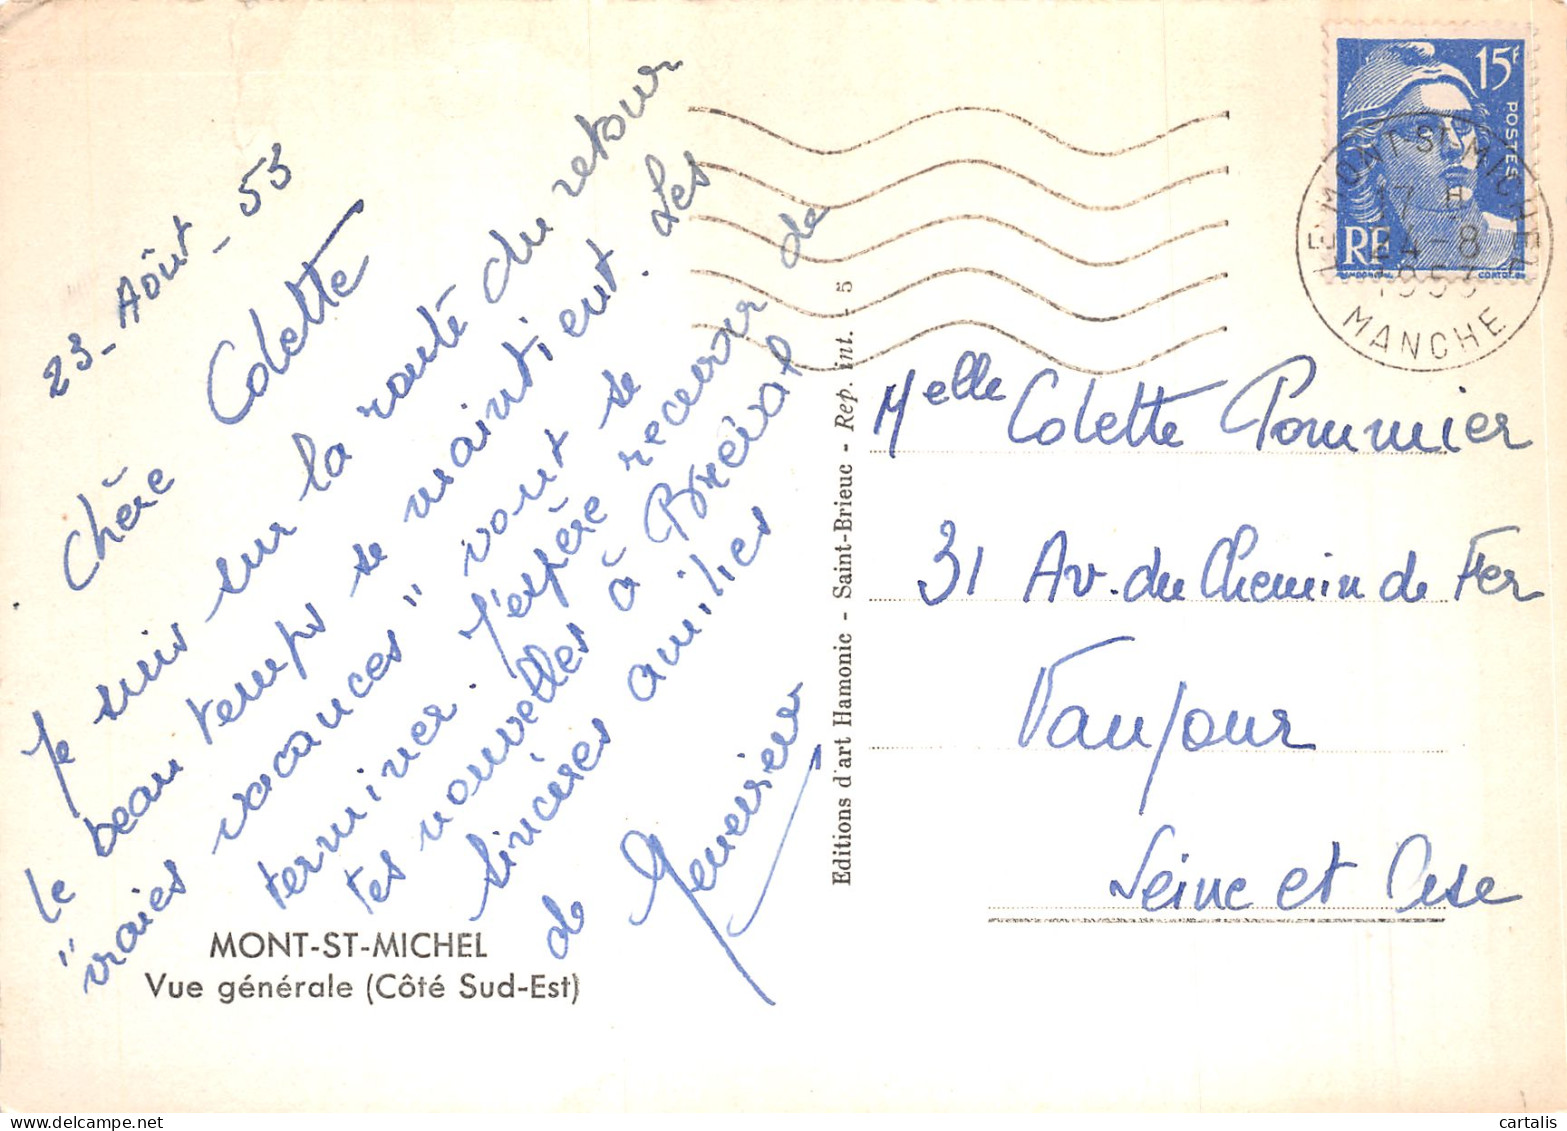 23_Aôut_53
Chère Colette
Je suis sur la route du retour
le beau temps se maintient. Les
"vraies vacances" vont se
terminer. J'espère recevoir de
tes nouvelles à Bréval
Sincères amitiés
de Geneviève
MONT-ST-MICHEL
Vue générale (Côté Sud-Est)
Editions d'art Hamonic - Saint-Brieuc - Rep. int. - 5
15F
POSTES
RF
LE MONT-ST-MICHEL
17 H
24-8
1953
MANCHE
Melle Colette Pommier
31 Av. du Chemin de Fer
Vaujour
Seine et Oise
cartalis